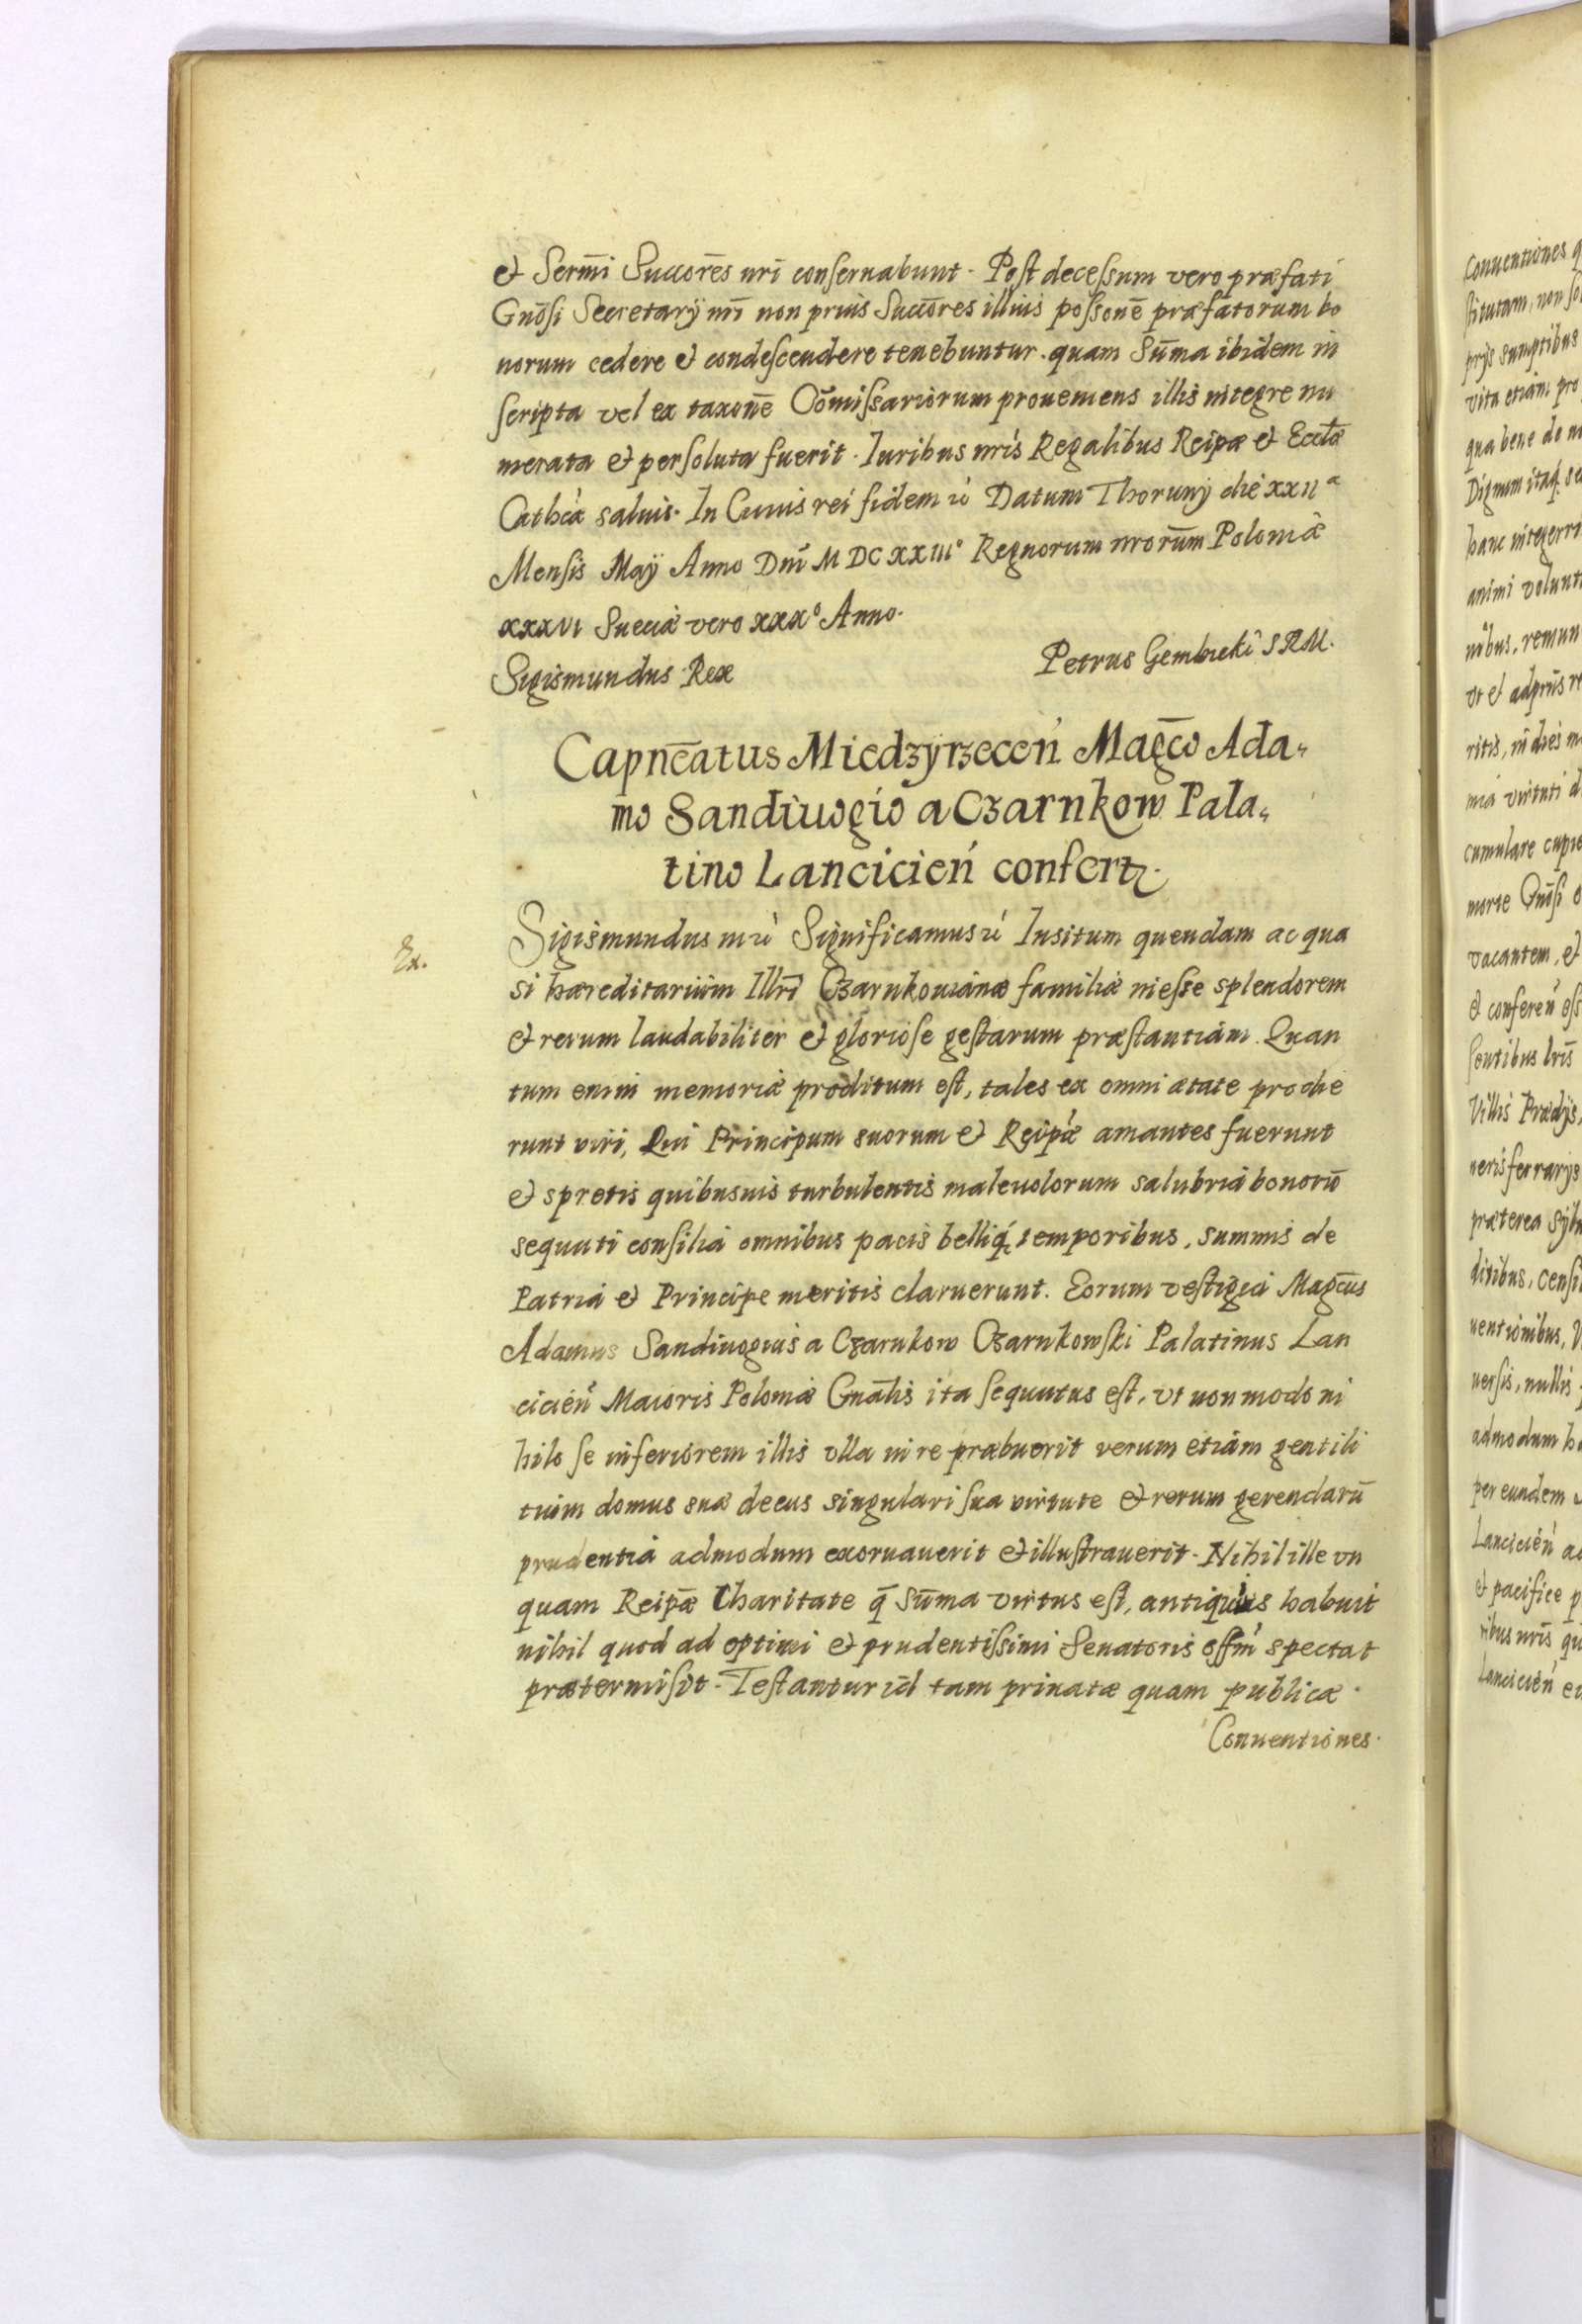 et Serm̄i Succores nrī conseruabunt. Post decessum vero præfati
Gnōsi Secretarÿ nrī non prius Succōres illius possonē præfatorum bo
norum cedere et condescendere tenebuntur. quam Sūma ibidem in
scripta vel ex taxonē Cōmissariorum proueniens illis integre nu
merata et persoluta fuerit. Iuribus nris Regalibus Reipæ et Eccl̄æ
Cathcæ saluis. In Cuius rei fidem ꝛć Datum Thorunÿ die XXIIᵃ
Mensis Maÿ Anno Dnī MDCXXIIIᵒ Regnorum nrorūm Poloniæ
XXXVI Sueciæ vero XXXᵒ Anno.
Sigismundus Rex
Petrus Gembicki SRM.
Capnēatus Miedzÿrzeceń Magc̄o Ada„
mo Sandiuogio a Czarnkow Pala„
tino Lancicień confertꝛ.
Ex.
Sigismundus III ꝛć Significamus ꝛć Insitum quendam ac qua
si hæreditarium Illrī Czarnkouianæ familiæ inesse splendorem
et rerum laudabiliter et gloriose gestarum præstantiam. Quan
tum enim memoriæ proditum est, tales ex omni ætate prodie
runt viri, Qui Principum suorum et Reipæ amantes fuerunt
et spretis quibusuis turbulentis maleuolorum salubria bonorū
sequuti consilia omnibus pacis belliq́ꝫ temporibus, summis de
Patria et Principe meritis claruerunt. Eorum vestigia Magc̄us
Adamus Sandiuogius a Czarnkow Czarnkowski Palatinus Lan
cicień Maioris Poloniæ Gnālis ita sequutus est, vt non modo ni
hilo se inferiorem illis vlla in re præbuerit verum etiam gentili
tium domus suæ decus singulari sua virtute et rerum gerendarū
prudentia admodum exornauerit et illustrauerit. Nihil ille vn
quam Reipæ Charitate q̄ sūma virtus est, antiquius habuit
nihil quod ad optimi et prudentissimi Senatoris offm̄ spectat
prætermisit. Testantur id tam priuatæ quam publicæ
Conuentiones.
Conuentiones
stitutam, non
prÿs sumptibus
vita etiam pro
qua bene de
Dignum itaq.
hanc integerri
animi volunt
nibus, remun
vt et ad
ritis, in dies
mia virtuti d
cumulare cupie
morte Gnōsi
vacantem, et
et conferen̄
sentibus lris̄
Villis Prædÿs,
neris ferrarÿs
præterea sylu
ditibus, censi
uentionibus,
uersis, nullis
admodum
per eundem
Lancicień
et pacifice p
ribus nris̄
Lancicień